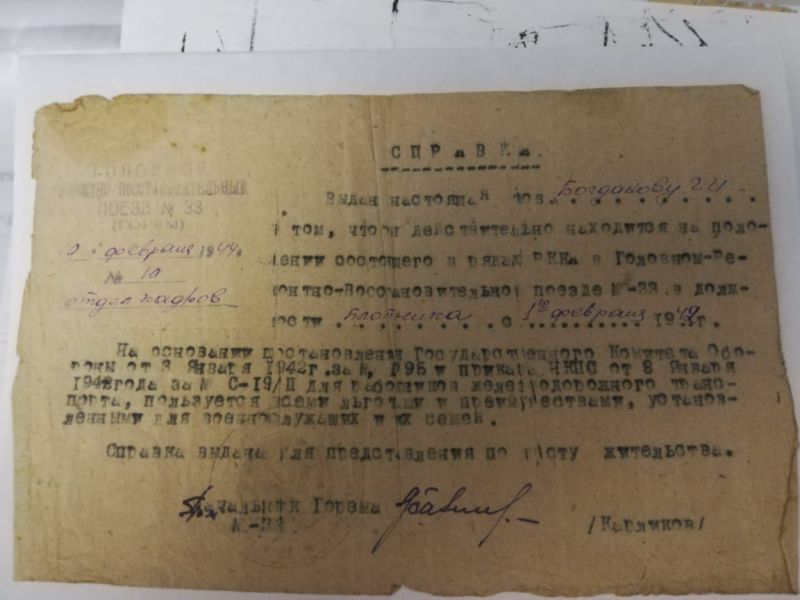 СПРАВКА.
ГОЛОВНОЙ
ПОЕЗД № 33
10 февраля 1944.
№ 10
отдел кадров
Выдан настоящая тов. Богданову Г.И
том, что он действительно находится на поло-
жении состоящего в рядах РККА в Головном-Ре-
монтно-Восстановительном поезде №-33 в долж-
ности Плотника с 1го февраля 1942г.
На основании постановления Государственного Комитета Обо-
роны от 3 Января 1942г. за №, 1095 и приказа НКПС от 8 Января
1942года за № С-19/Ц для работников железнодорожного транс-
порта, пользуется всеми льготами и преимуществами, установ-
ленными для военнослужащих и их семей.
Справка выдана для представления по месту жительства.
Начальник Горема
№-33
/Карликов/